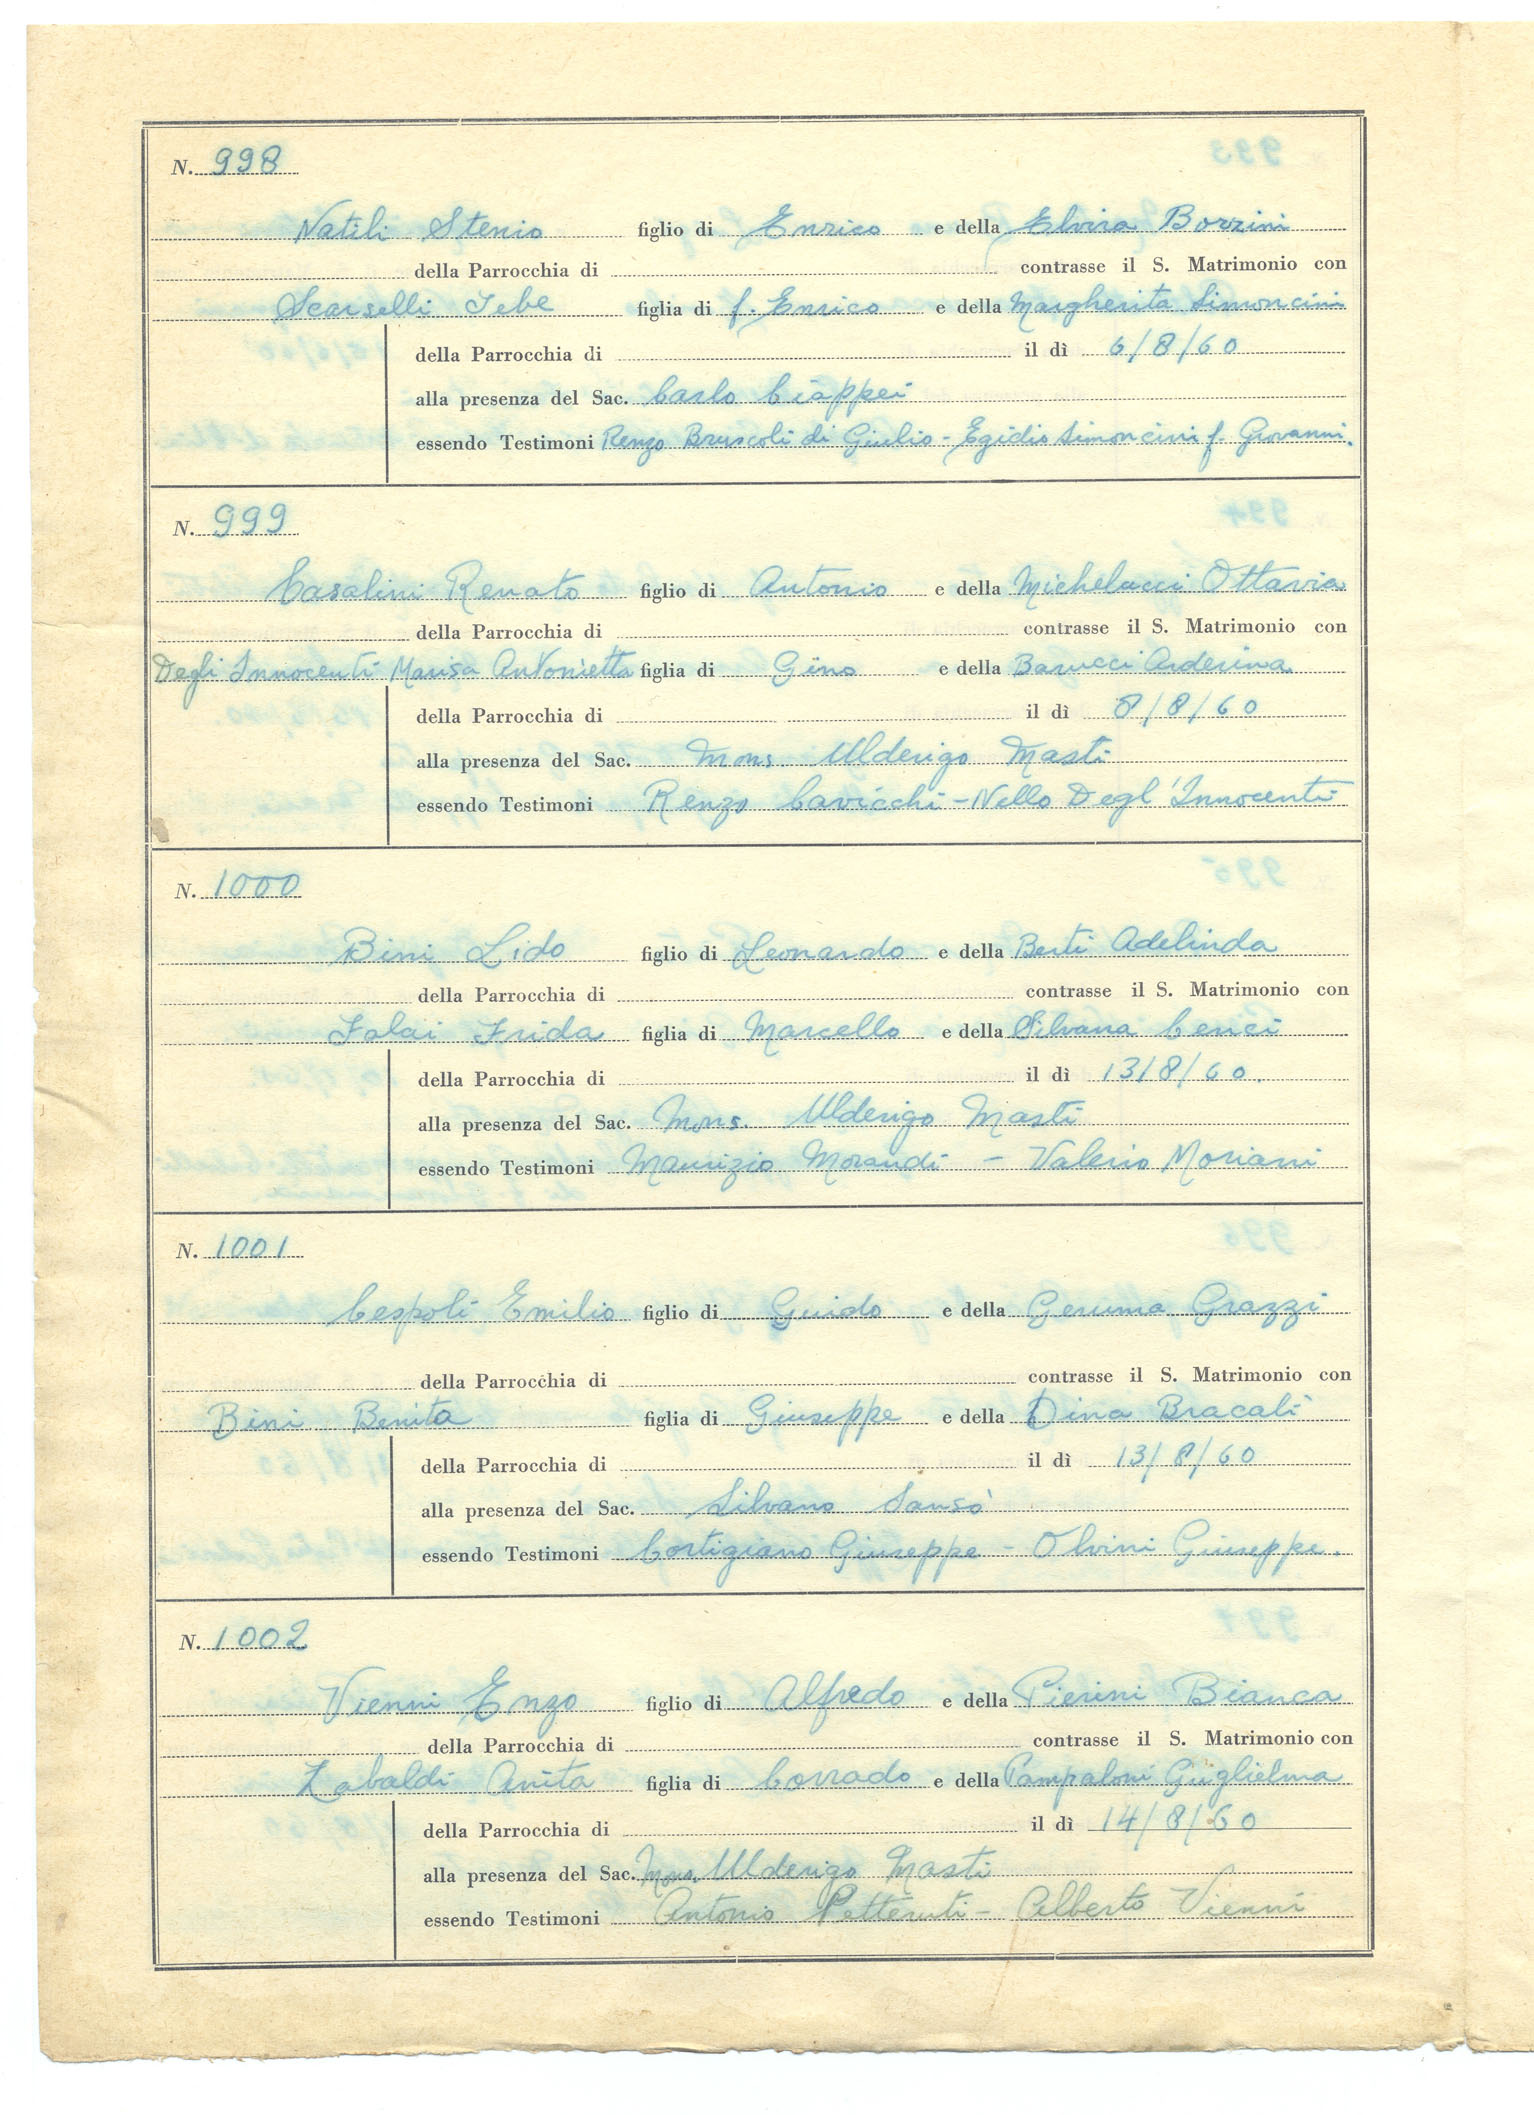 N. 998
Natili Stenio figlio di Enrico e della Elvira Borzini
della Parrocchia di contrasse il S. Matrimonio con
Scarselli Iebe figlia di f. Enrico e della Margherita Simoncini
della Parrocchia di il dì 6/8/60
alla presenza del Sac. Carlo Ciappei
essendo Testimoni Renzo Bruscoli di Giulio - Egidio Simoncini f. Giovanni.
N. 999
Casalini Renato figlio di Antonio e della Michelucci Ottavia
della Parrocchia di contrasse il S. Matrimonio con
Degli Innocenti Marisa Antonietta figlia di Gino e della Barucci Arderina
della Parrocchia di il dì 8/8/60
alla presenza del Sac. Mons. Ulderigo Masti
essendo Testimoni Renzo Cavicchi - Nello Degl'Innocenti
N. 1000
Bini Lido figlio di Leonardo e della Berti Adelinda
della Parrocchia di contrasse il S. Matrimonio con
Falai Frida figlia di Marcello e della Silvana Cenci
della Parrocchia di il dì 13/8/60.
alla presenza del Sac. Mons. Ulderigo Masti
essendo Testimoni Maurizio Morandi - Valerio Moriani
N. 1001
Cespoli Emilio figlio di Guido e della Gemma Grazzi
della Parrocchia di contrasse il S. Matrimonio con
Bini Benita figlia di Giuseppe e della Dina Bracali
della Parrocchia di il dì 13/8/60
alla presenza del Sac. Silvano Sansò
essendo Testimoni Cortigiano Giuseppe - Olvini Giuseppe.
N. 1002
Vienni Enzo figlio di Alfredo e della Pierini Bianca
della Parrocchia di contrasse il S. Matrimonio con
Labaldi Anita figlia di Corrado e della Pampaloni Guglielma
della Parrocchia di il dì 14/8/60
alla presenza del Sac. Mons. Ulderigo Masti
essendo Testimoni Antonio Petteruti - Alberto Vienni